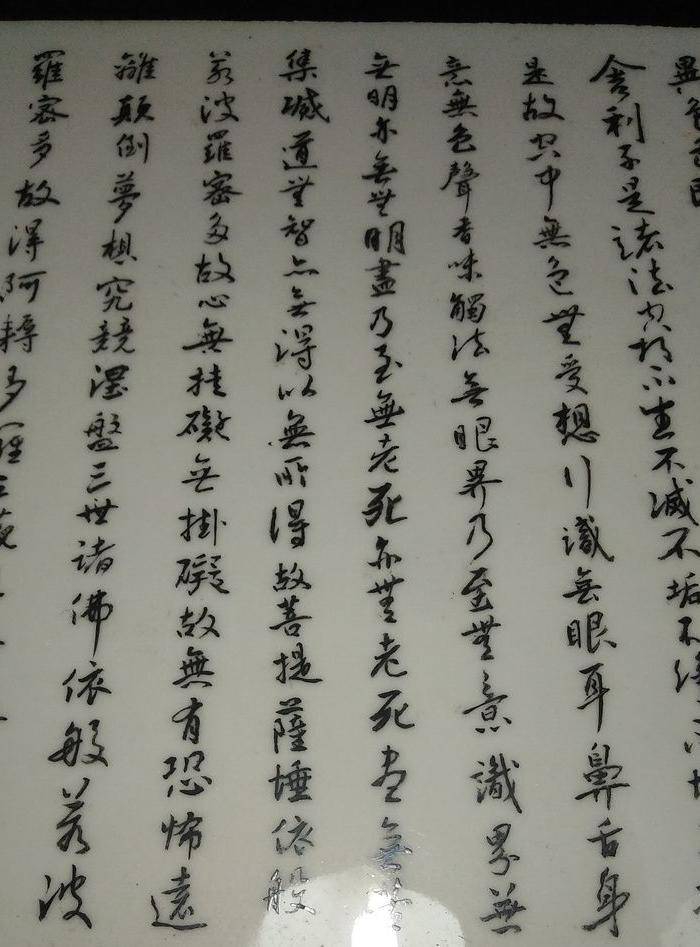 異色
舍利子是諸法空相不生不滅不垢不淨不增
是故空中無色無受想行識無眼耳鼻舌身
意無色聲香味觸法無眼界乃至無意識界無
無明亦無無明盡乃至無老死亦無老死盡無
集滅道無智亦無得以無所得故菩提薩埵依般
若波羅密多故心無挂礙無掛礙故無有恐怖遠
離顛倒夢想究竟涅盤三世諸佛依般若波
羅密多故得阿耨多羅三藐